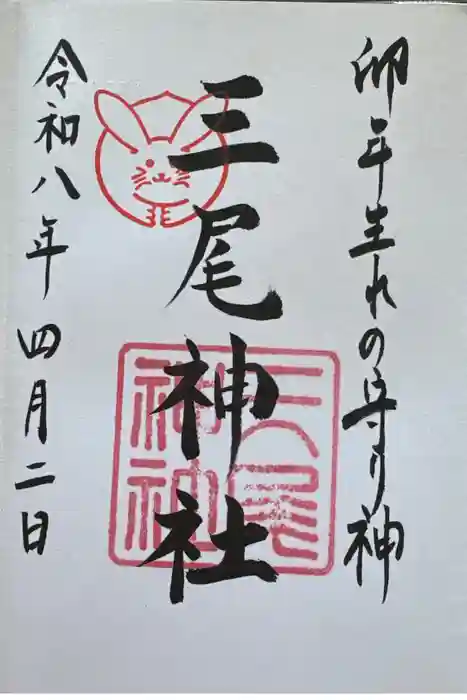 卯年生れの守り神
三尾神社
令和八年四月二日
三尾
神社